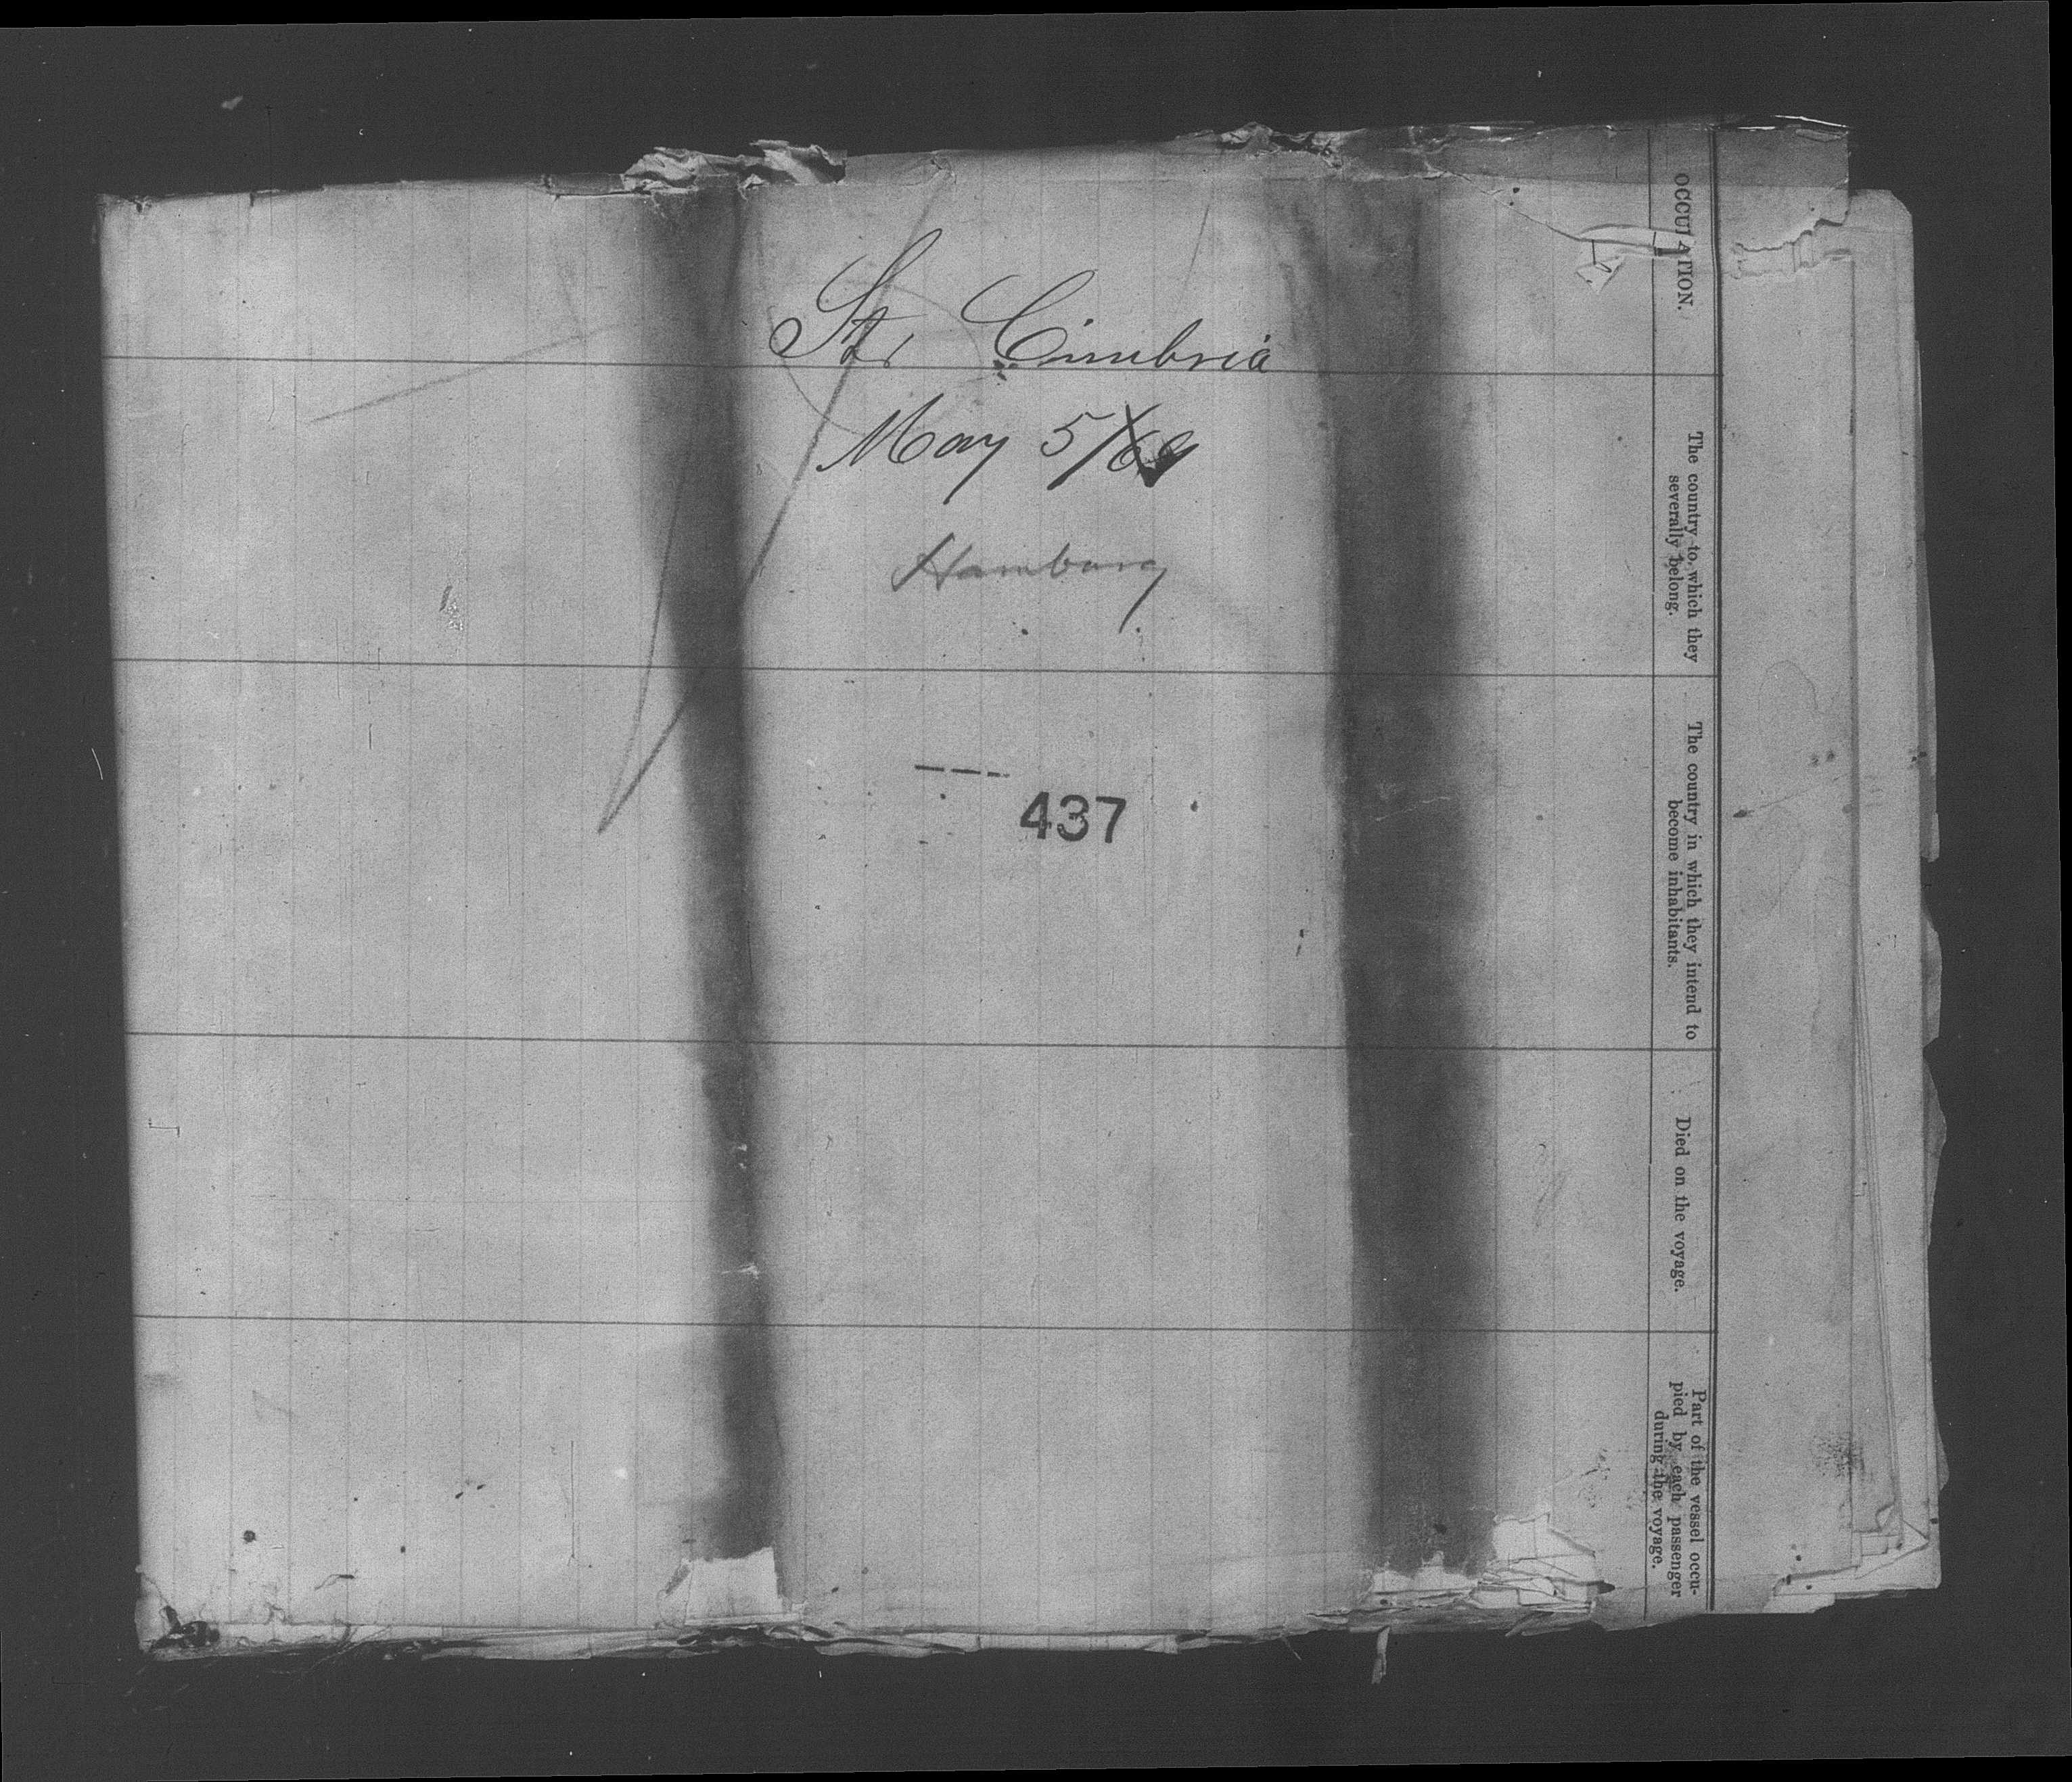 Str Cimbria
May 5/69
Hamburg
437
OCCUPATION.
The country to which they
severally belong.
The country in which they intend to
become inhabitants.
Died on the voyage.
Part of the vessel occu-
pied by each passenger
during the voyage.